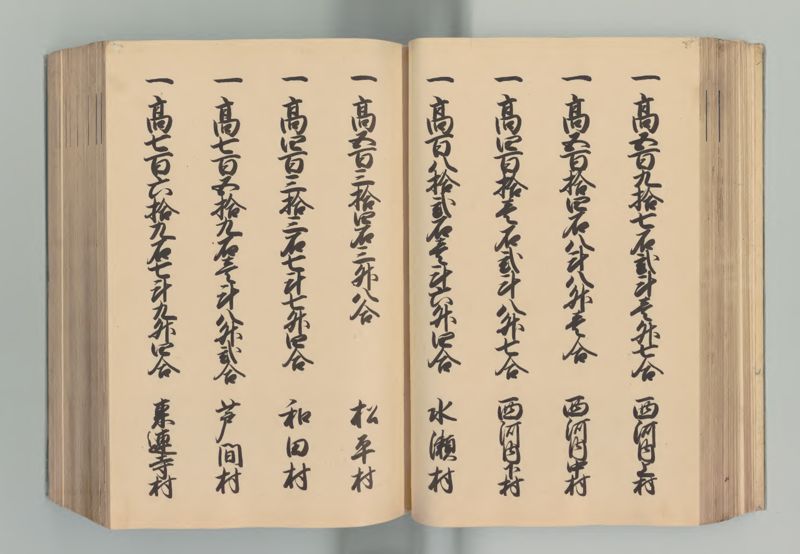 一高五百九拾七石弐斗壱升七合 西河内上村
一高五百拾四石八斗八升壱合 西河内中村
一高四百拾壱石弐斗八升七合 西河内下村
一高百八拾弐石壱斗六升四合 水瀬村
一高五百三拾四石三升八合 松平村
一高四百三拾三石七斗七升四合 和田村
一高七百五拾九石壱斗八升弐合 芦間村
一高七百六拾九石七斗九升四合 東連寺村